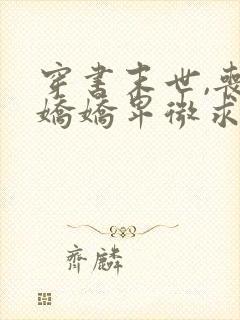 穿书末世,丧
娇娇卑微求
齐麟